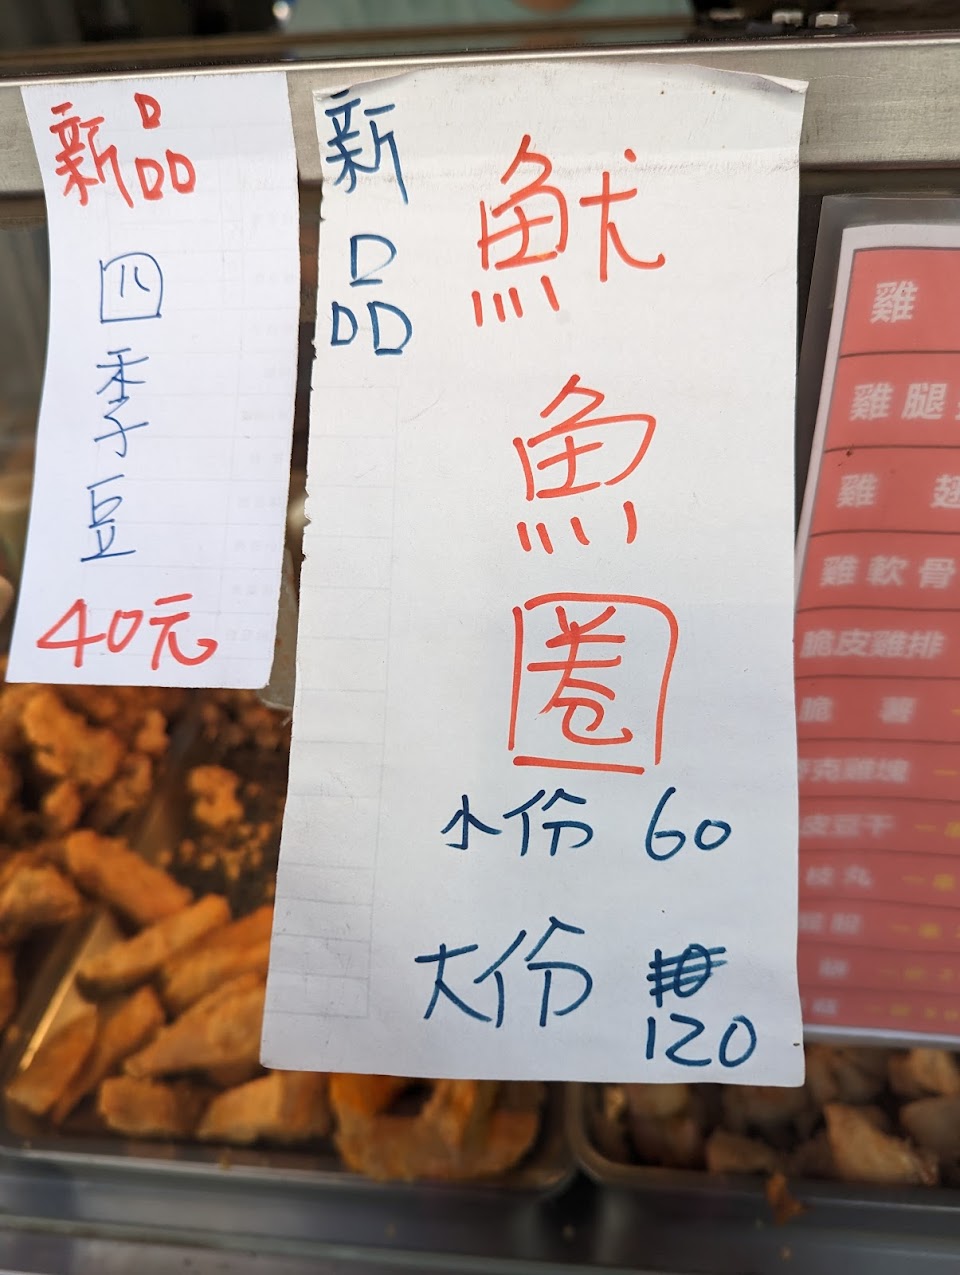 新品
四季豆
40元
新品
魷魚圈
小份 60
大份
120
雞
雞腿
雞 翅
雞軟骨
脆皮雞排
脆 薯
麥克雞塊
皮豆干
丸